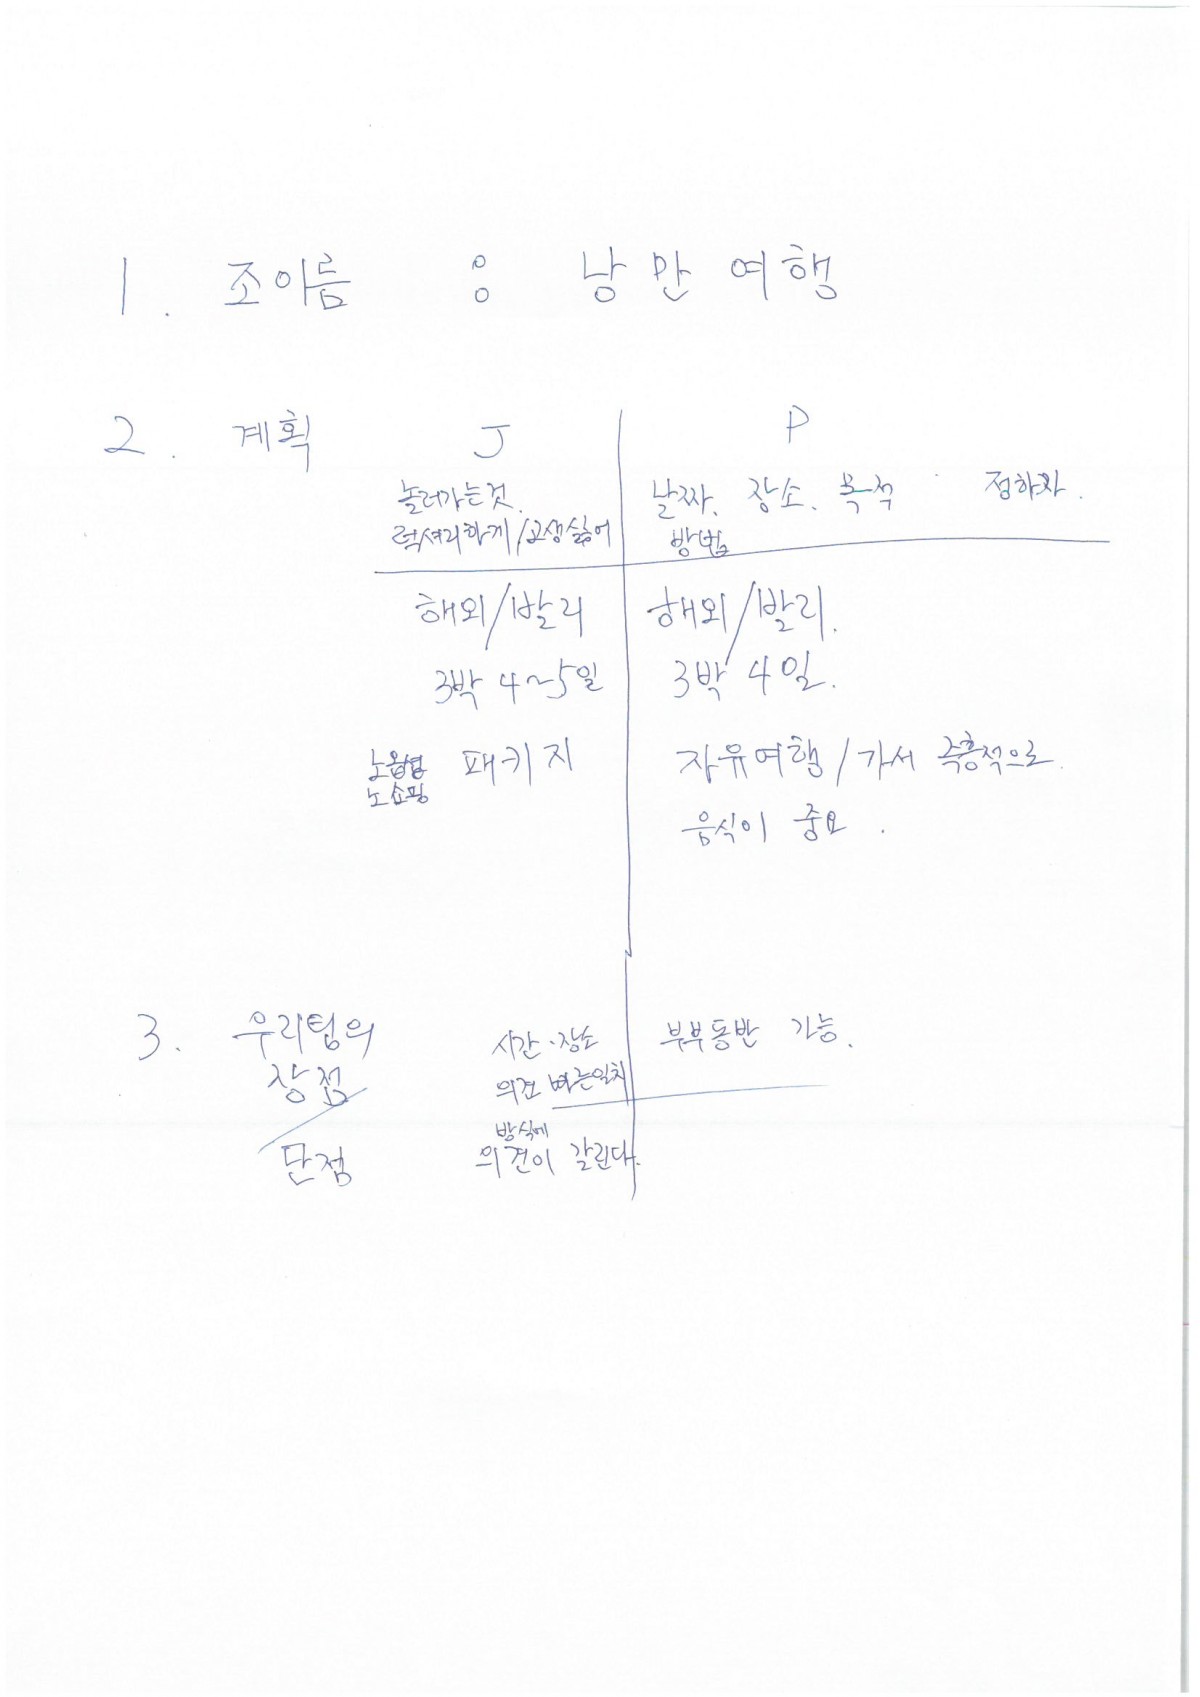 1. 조이름 : 낭만여행
2. 계획 J P
놀러가는것. 날짜. 장소. 목적 정하자.
럭셔리하게/고생싫어 방법
해외/발리 해외/발리.
3박 4~5일 3박 4일.
노옵션 패키지 자유여행/가서 즉흥적으로.
노쇼핑
음식이 중요.
3. 우리팀의 시간·장소 부부동반 가능.
장점 의견 빠른일치
방식에
단점 의견이 갈린다.